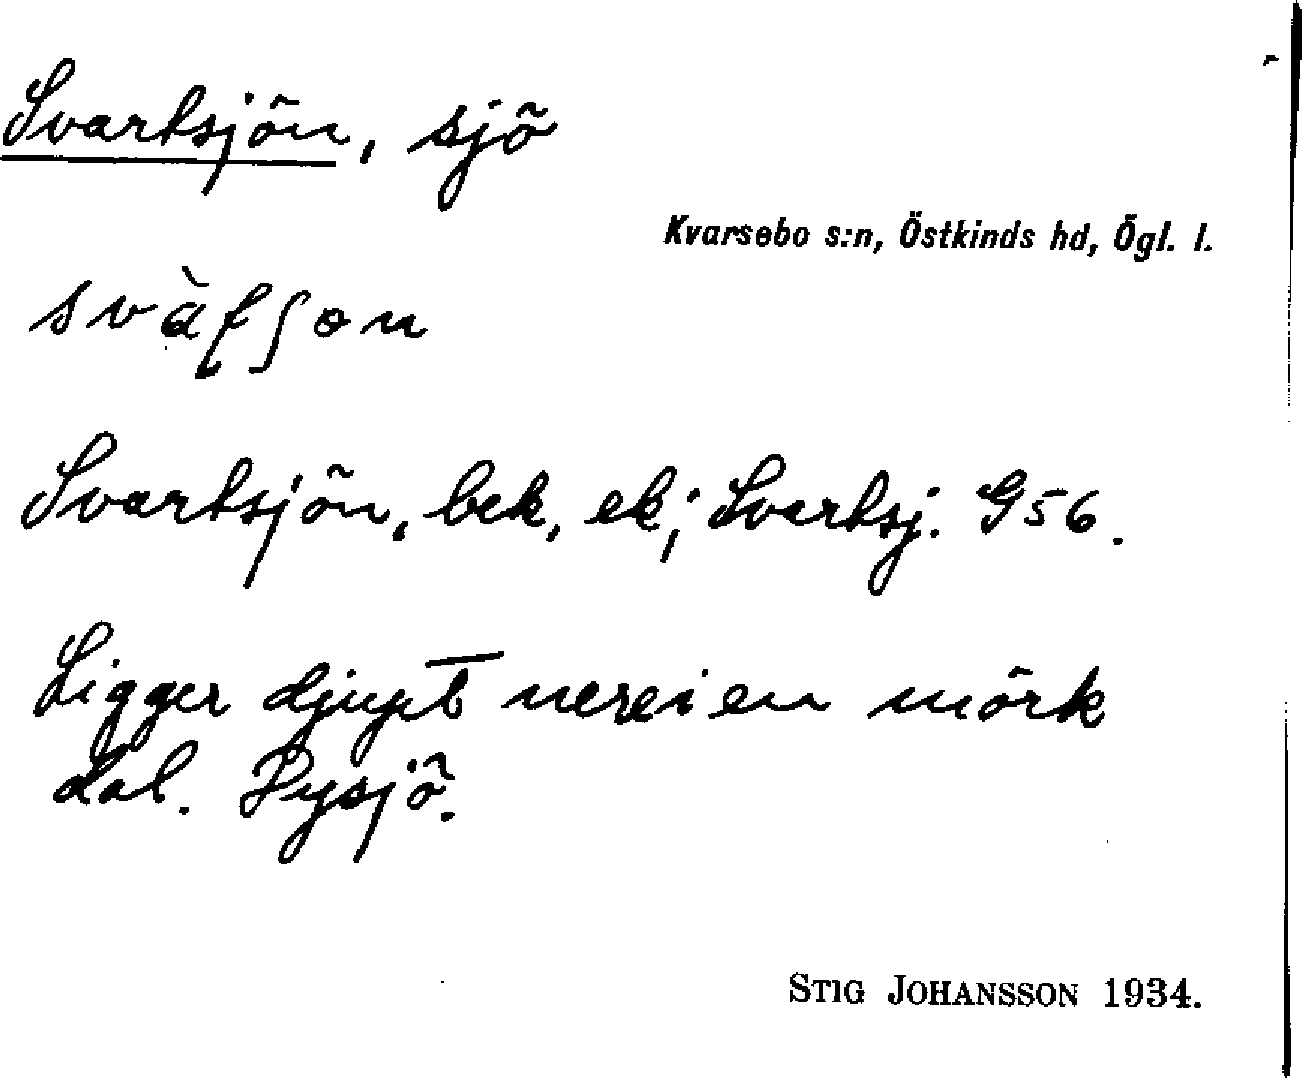 Svartsjön, sjö
Kvarsebo s:n, Östkinds hd, Ögl. l.
Svartsjön, bek, ek; Svartsj. G56.
Ligger djupt nere i en mörk
dal. Dysjö.
STIG JOHANSSON 1934.